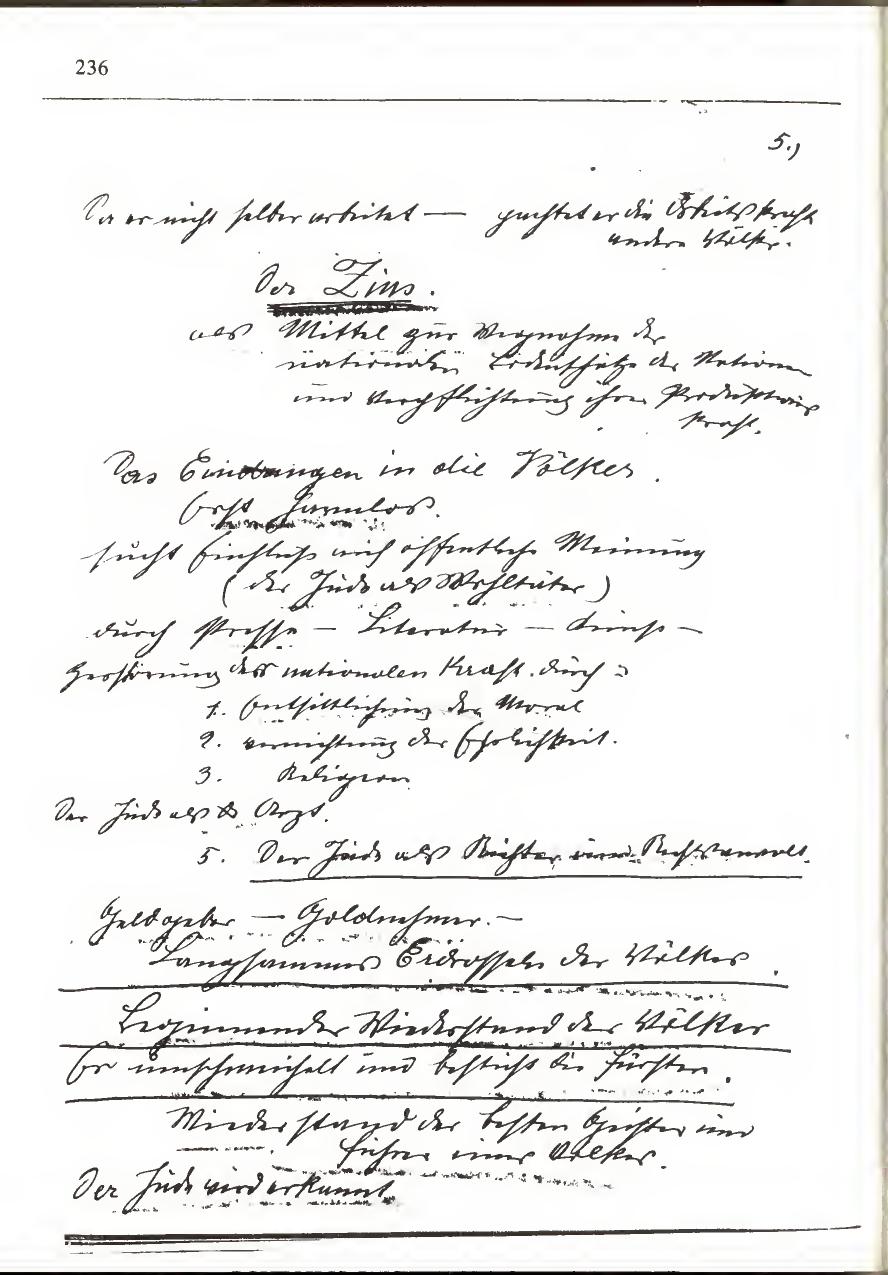 236
5.)
Da er nicht selber arbeitet — pachtet er die Arbeitskraft
andern Völker.
Der Zins.
als Mittel zur Wegnahme der
nationalen Bodenschätze der Nationen
und Verpflichtung ihrer Produktions
kraft.
Das Eindrungen in die Völker.
Erst harmlos.
sucht Einfluß auf öffentliche Meinung
(der Jude als Wohltäter)
durch Presse — Literatur — Kunst —
Zerstörung der nationalen Kraft durch:
1. Entsittlichung der Moral
2. Vernichtung der Ehrlichkeit.
3. Religion
Der Jude als Arzt.
5. Der Jude als Richter und Rechtsanwalt.
Geldgeber — Geldnehmer. —
Langsammes Erdrosseln der Völker.
Beginnender Wiederstand der Völker
Er umschmeichelt und besticht die Fürsten.
Wiederstand der besten Geister und
Führer eines Volkes.
Der Jude wird erkannt